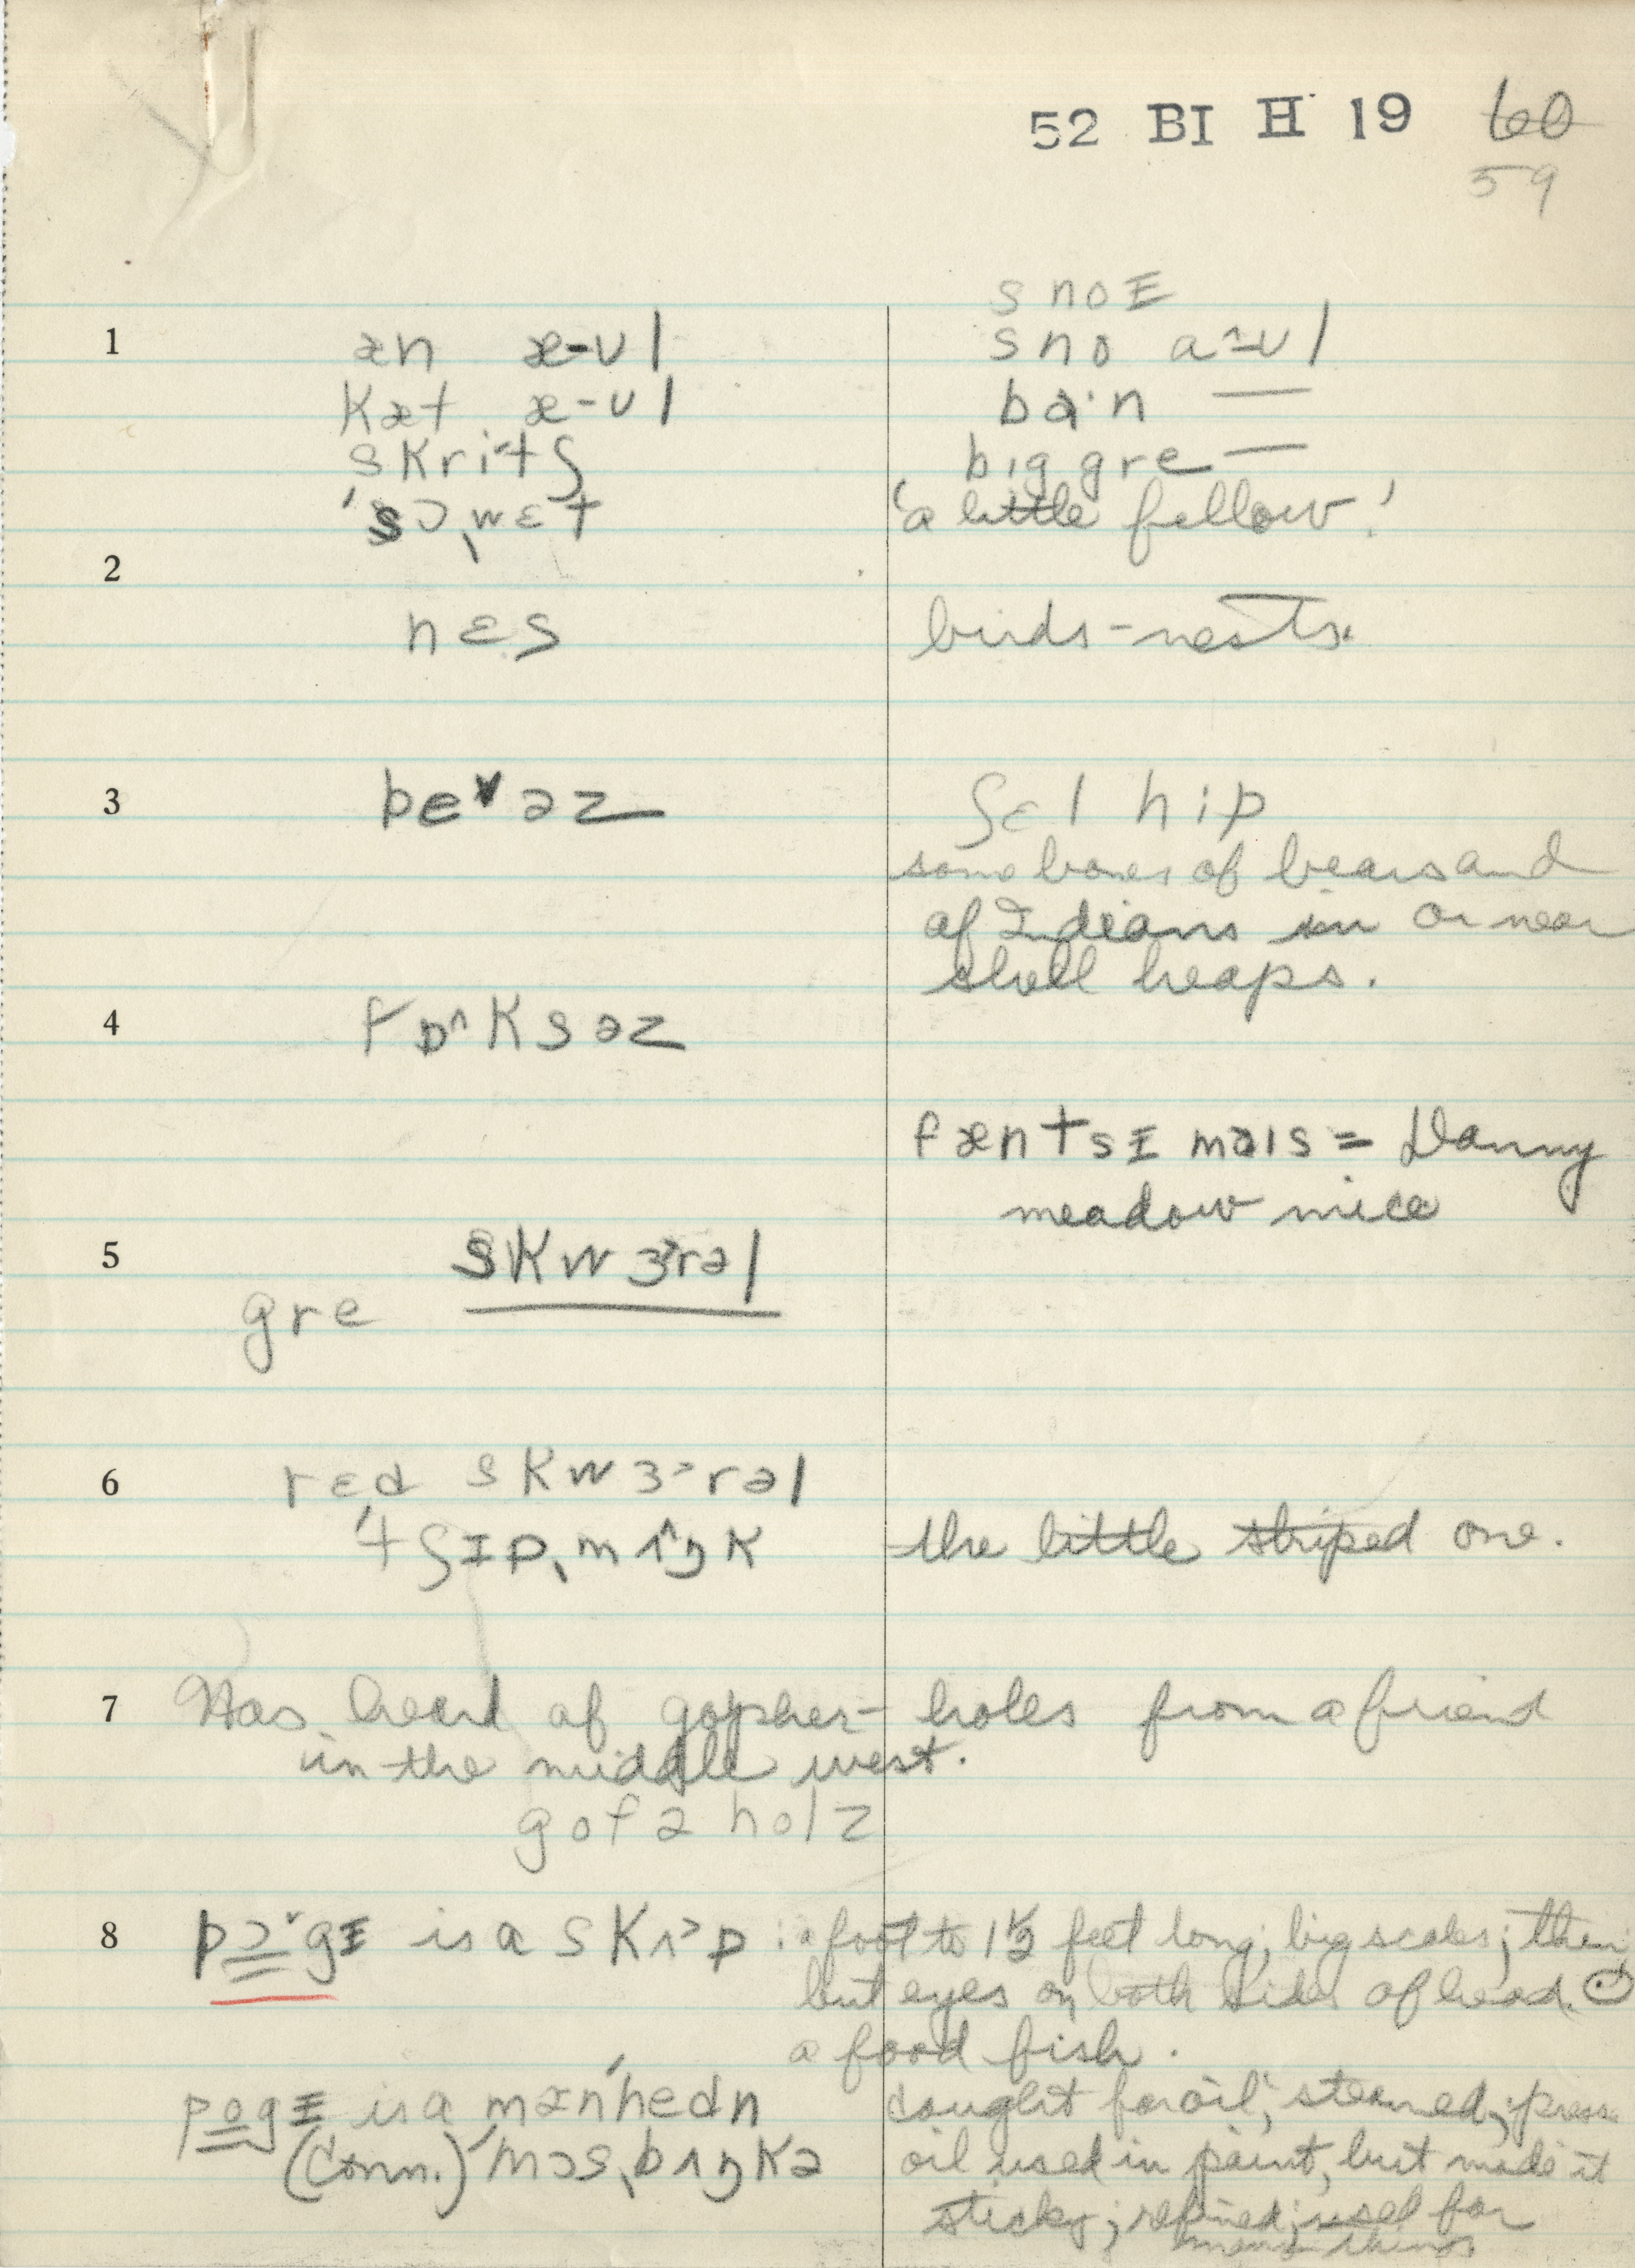 52 BI H 19 60
59
s no ɪ
1 æn æ-ʊl sno aʊl
kæt æ-ʊl bɑ·n —
skritʃ big gre —
'sɔˌwɛt 'a little fellow!'
2
nɛs birds-nests.
3 beᵛəz ʃɛl hip
some bones of bears and
of Indians in or near
shell heaps.
4 fɒ^ksəz
fæntsɪ mais = Danny
meadow mice
5 skwɜrəl
gre
6 rɛd skwɜ>rəl
'tʃɪpˌmʌŋk the little striped one.
7 Has heard of gopher-holes from a friend
in the middle west.
gofə holz
8 pɔˇgɪ is a skʌ>p : a foot to 1½ feet long; big scales; thin
but eyes on both sides of head.
a food fish.
pogɪ is a mæn'hedn caught for oil; steamed; press
(Conn.) 'mɔsˌbʌŋkə oil used in paint, but made it
sticky; refined; used for
many things